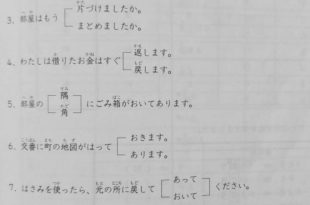 3. 部屋はもう 片づけましたか。
まとめましたか。
4. わたしは借りたお金はすぐ 返します。
戻します。
5. 部屋の 隅 にごみ箱がおいてあります。
角
6. 交番に町の地図がはって おきます。
あります。
7. はさみを使ったら、元の所に戻して あって ください。
おいて